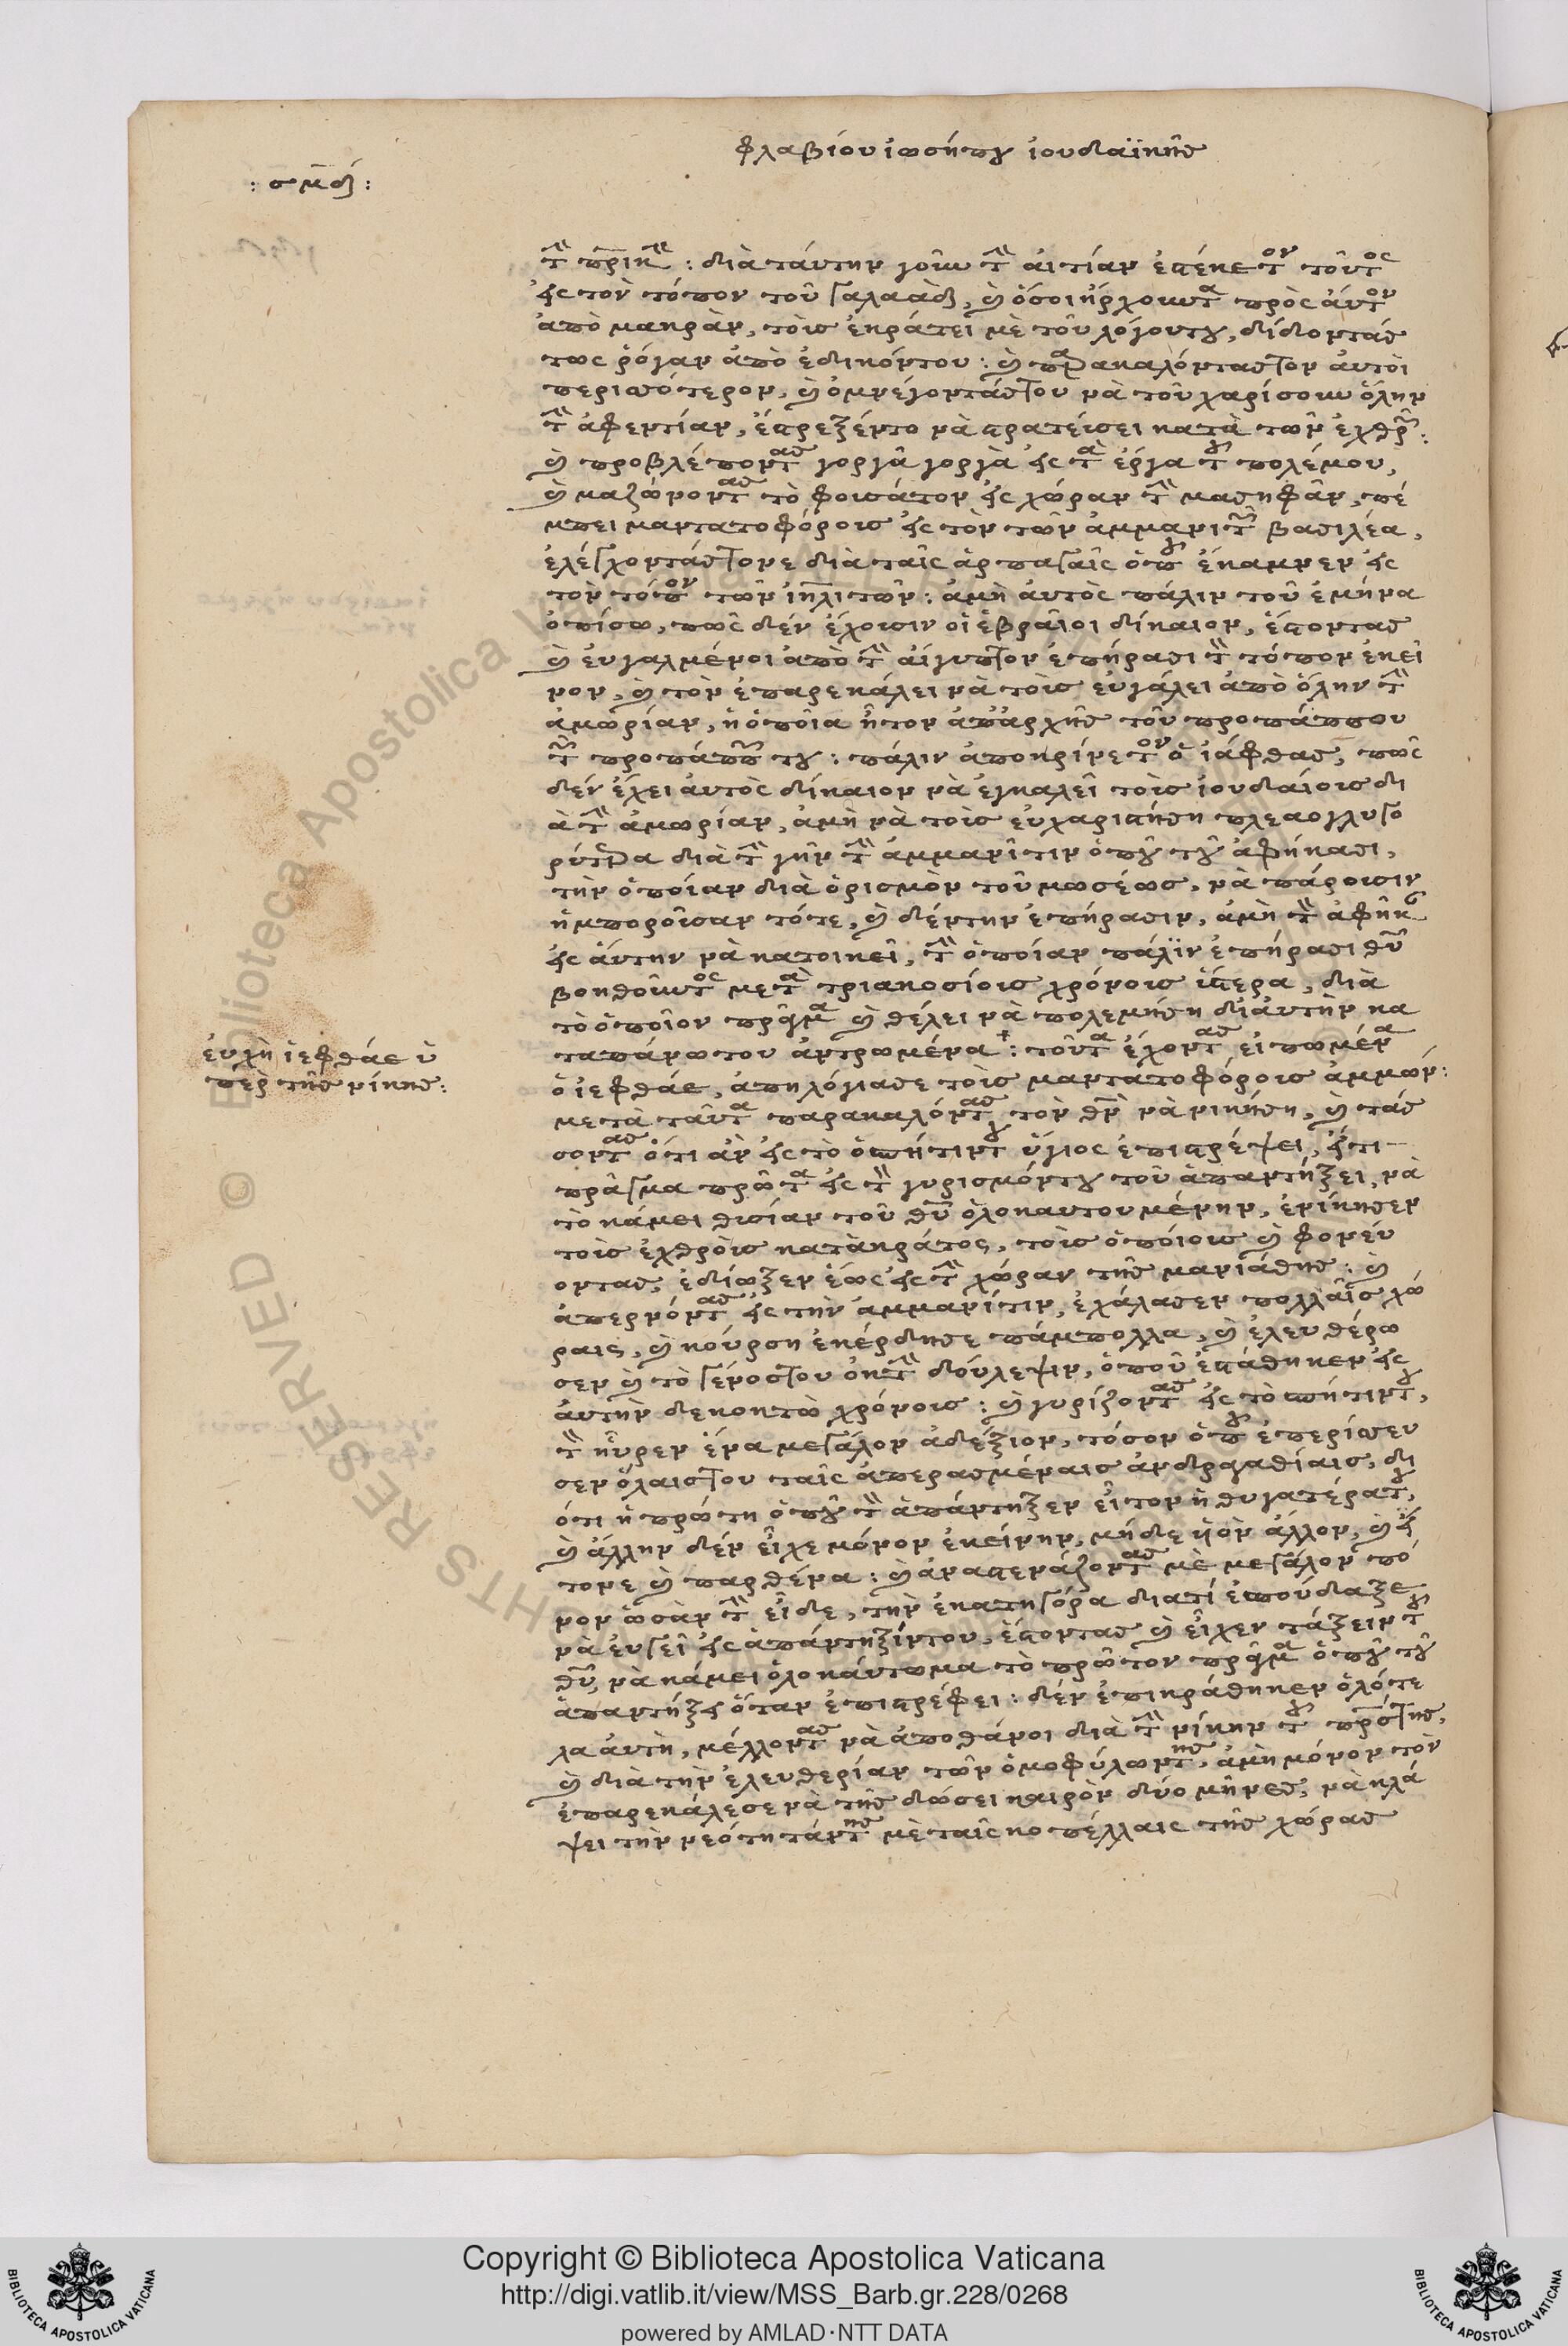 φλαβίου ἰωσήπου ἰουδαϊκῆς
: σμδ :
τὴν πρικ : διὰ ταύτην γοῦν τὴν αἰτίαν ἐστέκετον τοῦτος
εἰς τὸν τόπον τοῦ γαλαὰδ, καὶ ὅσοι ἤρχουντα πρὸς αὐτὸν
ἀπὸ μακρὰν, τοὶς ἐκράτει μὲ τοῦ λόγουτου, δίδοντάς
τως ῥόγαν ἀπὸ ἐδικόντου : καὶ παρακαλόντας τον αὐτοὶ
περισσότερον, καὶ ὀμνέγοντάς του νὰ τοῦ χαρίσουν ὅλην
τὴν ἀφεντίαν, ἐστρεξέντο νὰ στρατεύσει κατὰ τῶν ἐχθρῶν :
καὶ προβλέποντας γοργὰ γοργὰ εἰς τὰ ἔργα τοῦ πολέμου,
καὶ μαζώνοντας τὸ φουσάτον εἰς χώραν τὴν μασηφᾶν, πέ
μπει μαντατοφόρους εἰς τὸν τῶν ἀμμανιτῶν βασιλέα,
ἐλέγχοντάς τονε διὰ ταῖς ἁρπαγαῖς ὁποῦ ἔκαμνεν εἰς
τὸν τόπον τῶν ἰηλιτῶν : ἀμὴ αὐτὸς πάλιν τοῦ ἐμήνα
ὀπίσω, πῶς δὲν ἔχουσιν οἱ ἑβραῖοι δίκαιον, ἔστοντας
καὶ ἐυγαλμένοι ἀπὸ τὴν αἴγυπτον ἐπήρασι τὸν τόπον ἐκεῖ
νον, καὶ τὸν ἐπαρεκάλει νὰ τοὶς εὐγάλει ἀπὸ ὅλην τὴν
ἀμωρίαν, ἡ ὁποῖα ἦτον ἀπαρχῆς τοῦ προπάππου
τῶν προπάππων του : πάλιν ἀποκρίνετον ὁ ἰάφθας, πῶς
δὲν ἔχει αὐτὸς δίκαιον νὰ ἐγκαλεῖ τοὶς ἰουδαίοις δι
ὰ τὴν ἀμωρίαν, ἀμὴ νὰ τοὶς εὐχαριστήση
διὰ τὴν γῆν τὴν ἀμμανῖτιν ὁποῦ τοῦ ἀφήκασι,
τὴν ὁποίαν διὰ ὁρισμὸν τοῦ μωσέως, νὰ πάρουσιν
ἠμποροῦσαν τότε, καὶ δέντην ἐπήρασιν, ἀμὴ τὴν ἀφῆκαν
εἰς αὐτὴν νὰ κατοικεῖ, τὴν ὁποίαν πάλιν ἐπήρασι θεοῦ
βοηθοῦντος μετὰ τριακοσίοις χρόνοις ὕστερα, διὰ
τὸ ὁποῖον πρᾶγμα καὶ θέλει νὰ πολεμήση διαυτὴν κα
ταπάνωτου ἀντρωμένα : τοῦτα ἔχοντας εἰπωμένα
ὁ ἰεφθάε, ἀπηλόγιασε τοὶς μαντατοφόροις ἀμμών :
μετὰ ταῦτα παρακαλόντας τὸν θεὸν νὰ νικήση, καὶ τάσ
σοντας ὅτι ἂν εἰς τὸ ὁσπήτιντου ὕγιος ἐπιστρέψει, εἴτι
πρᾶγμα πρῶτα εἰς τὸν γυρισμόντου τοῦ ἀπαντήξει, νὰ
τὸ κάμει θυσίαν τοῦ θεοῦ ὁλοκαυτουμένην, ἐνίκησεν
τοὶς ἐχθροὶς κατὰκράτος, τοὶς ὁποίοις καὶ φονεύ
οντας, ἐδίωξεν ἕως εἰς τὴν χώραν τῆς μανιάθης : καὶ
ἀπερνόντας εἰς τὴν ἀμμανίτιν, ἐχάλασεν πολλαῖς χώ
ραις, καὶ κούρση ἐκέρδησε πάμπολλα, καὶ ἐλευθέρω
σεν καὶ τὸ γένοςτου ὀκτὴν δούλεψιν, ὁποῦ ἐστάθηκεν εἰς
αὐτὴν δεκοκτὼ χρόνοις : καὶ γυρίζοντας εἰς τὸ σπήτιντου,
τὸν ηὗρεν ἕνα μεγάλον ἀδέξιον, τόσον ὁποῦ ἐπερίσσευ
σεν ὅλαιςτου ταῖς ἀπερασμέναις ἀνδραγαθίαις, δι
ότι ἡ πρώτη ὁποῦ τὸν ἀπάντηξεν εἶτον ἡ θυγατέρατου,
καὶ ἄλλην δὲν εἶχε μόνον ἐκείνην, μήδε ὑὸν ἄλλον, καὶ εἴ
τονε καὶ παρθένα : καὶ ἀναστενάζοντας μὲ μεγάλον πό
νον ὡσὰν τὴν εἶδε, τὴν ἐκατηγόρα διατί ἐσπούδαξε
νὰ ἐυγεῖ εἰς ἀπάντηξίντου, ἔστοντας καὶ εἶχεν τάξειν τοῦ
θεοῦ νὰ κάμει ὁλοκαύτωμα τὸ πρῶτον πρᾶγμα ὁποῦ τοῦ
ἀπαντήξει ὅταν ἐπιστρέφει : δὲν ἐπικράθηκεν ὁλότε
λα αὐτὴ, μέλλοντας νὰ ἀποθάνοι διὰ τὴν νίκην τοῦ πατρόςτης,
καὶ διὰ τὴν ἐλευθερίαν τῶν ὁμοφύλωντης, ἀμὴ μόνον τὸν
ἐπαρεκάλεσε νὰ τῆς δώσει καιρὸν δύο μῆνες, νὰ κλά
ψει τὴν νεότητάντης μὲ ταῖς κοπέλλαις τῆς χώρας
εὐχὴ ἰεφθάε ὑ
πὲρ τῆς νίκης :
Copyright © Biblioteca Apostolica Vaticana
http://digi.vatlib.it/view/MSS_Barb.gr.228/0268
powered by AMLAD·NTT DATA
BIBLIOTECA APOSTOLICA VATICANA
BIBLIOTECA APOSTOLICA VATICANA